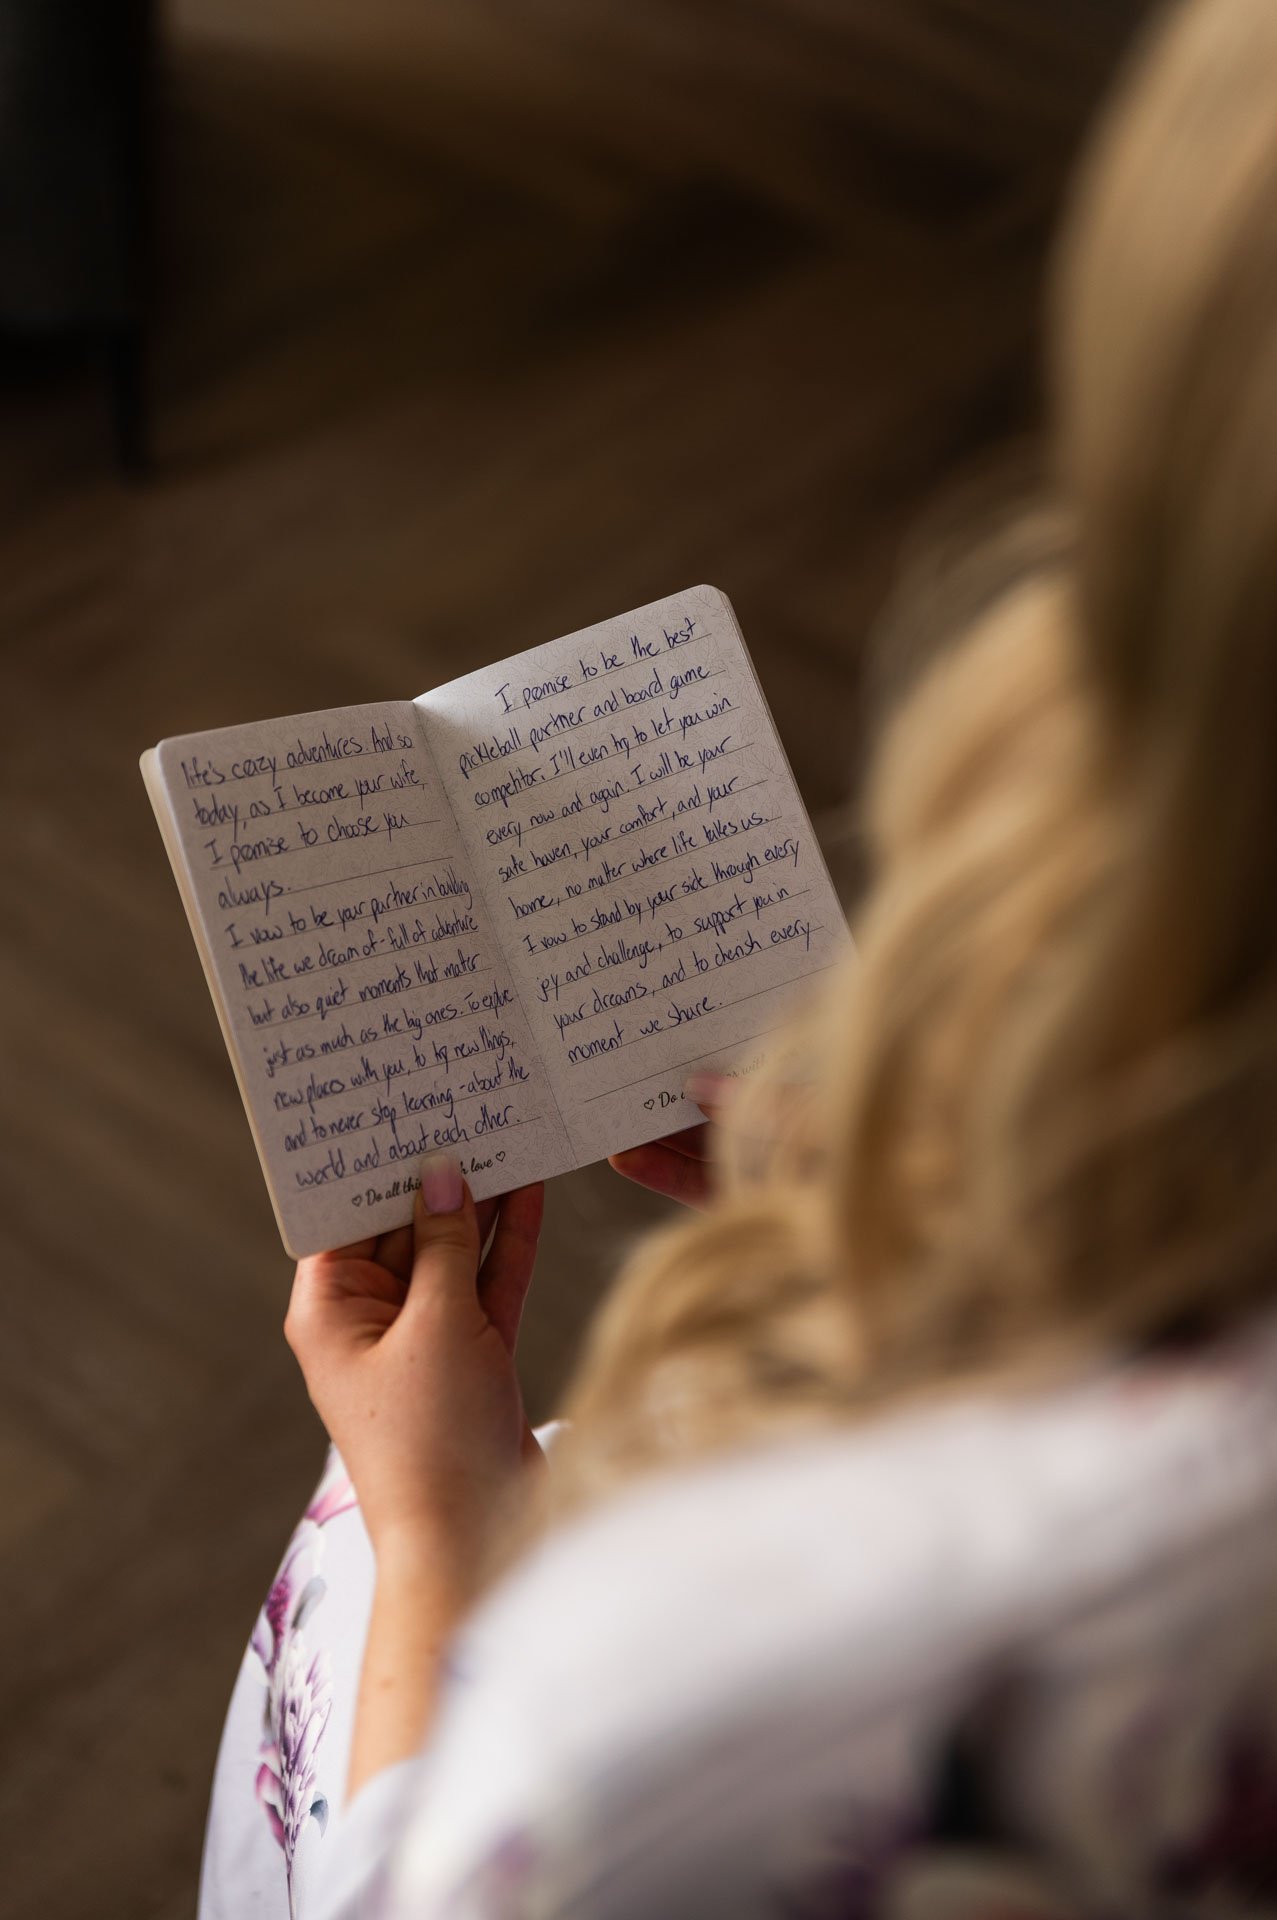 life's crazy adventures. And so
today, as I become your wife,
I promise to choose you
always.
I vow to be your partner in building
the life we dream of - full of adventure
but also quiet moments that matter
just as much as the big ones. To explore
new places with you, to try new things,
and to never stop learning - about the
world and about each other.
♡ Do all love ♡
I promise to be the best
pickleball partner and board game
competitor. I'll even try to let you win
every now and again. I will be your
safe haven, your comfort, and your
home, no matter where life takes us.
I vow to stand by your side through every
joy and challenge, to support you in
your dreams, and to cherish every
moment we share.
♡ Do